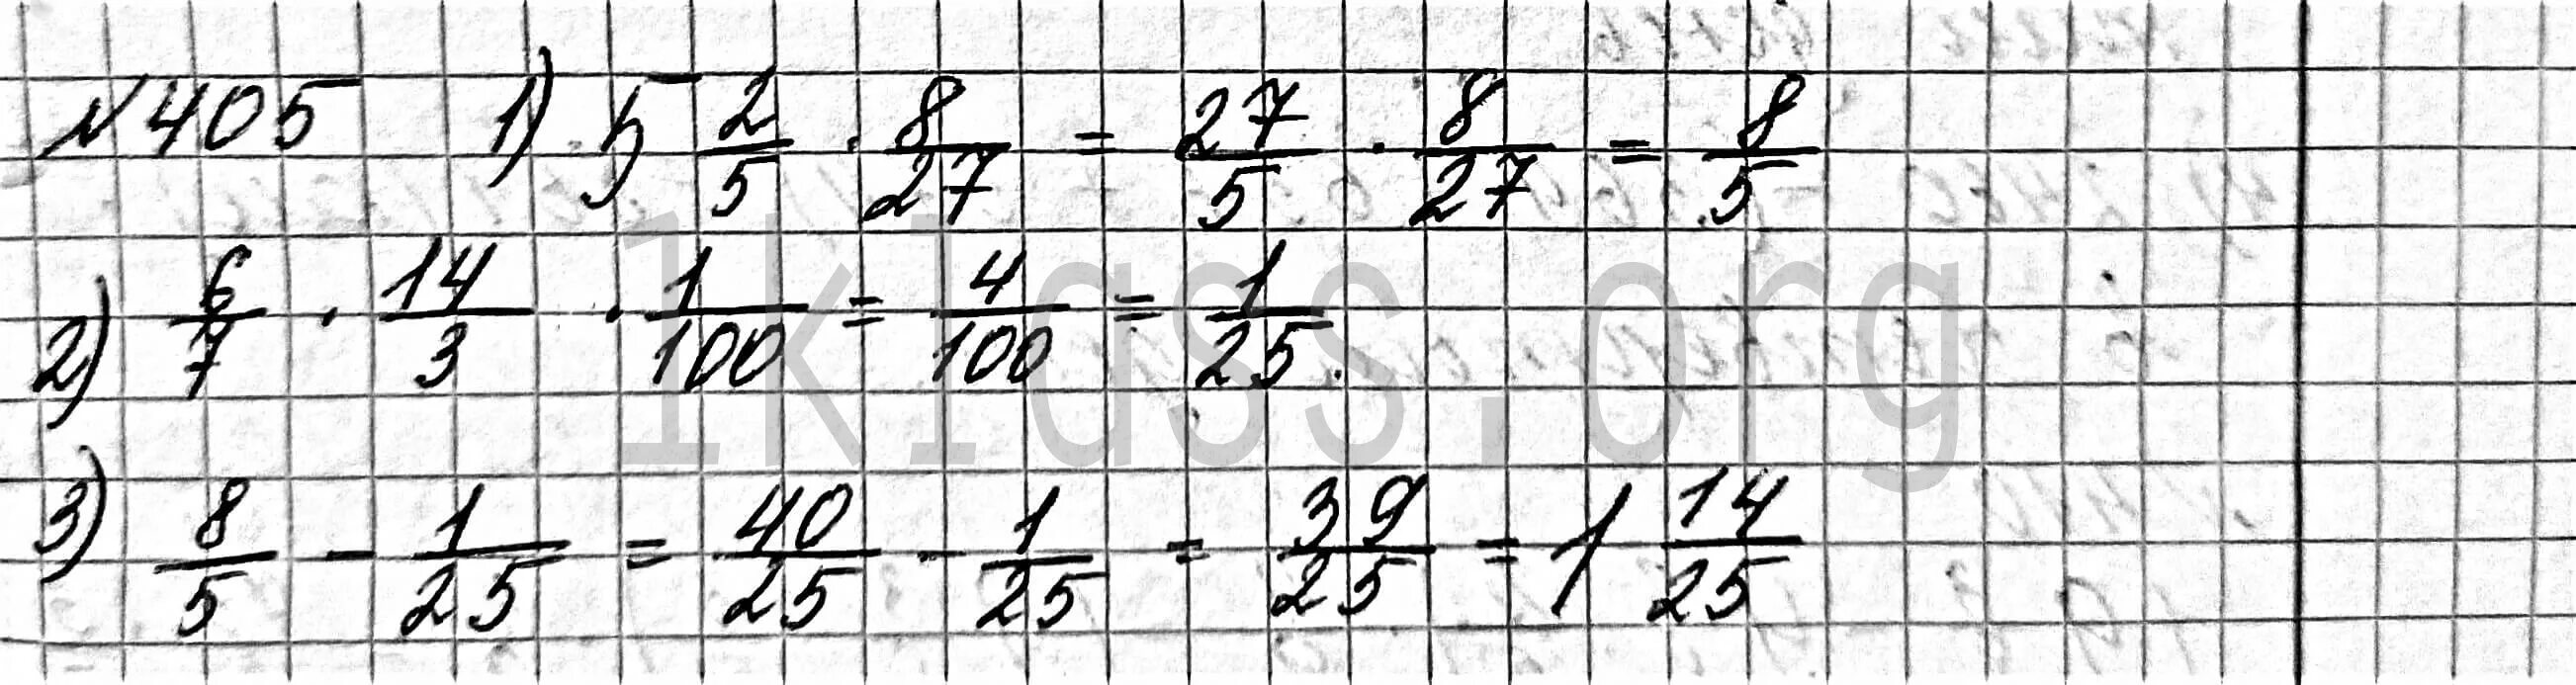 №405 1) 5 2/5 · 8/27 = 27/5 · 8/27 = 8/5
2) 6/7 · 14/3 · 1/100 = 4/100 = 1/25.
3) 8/5 - 1/25 = 40/25 - 1/25 = 39/25 = 1 14/25
1klass.org